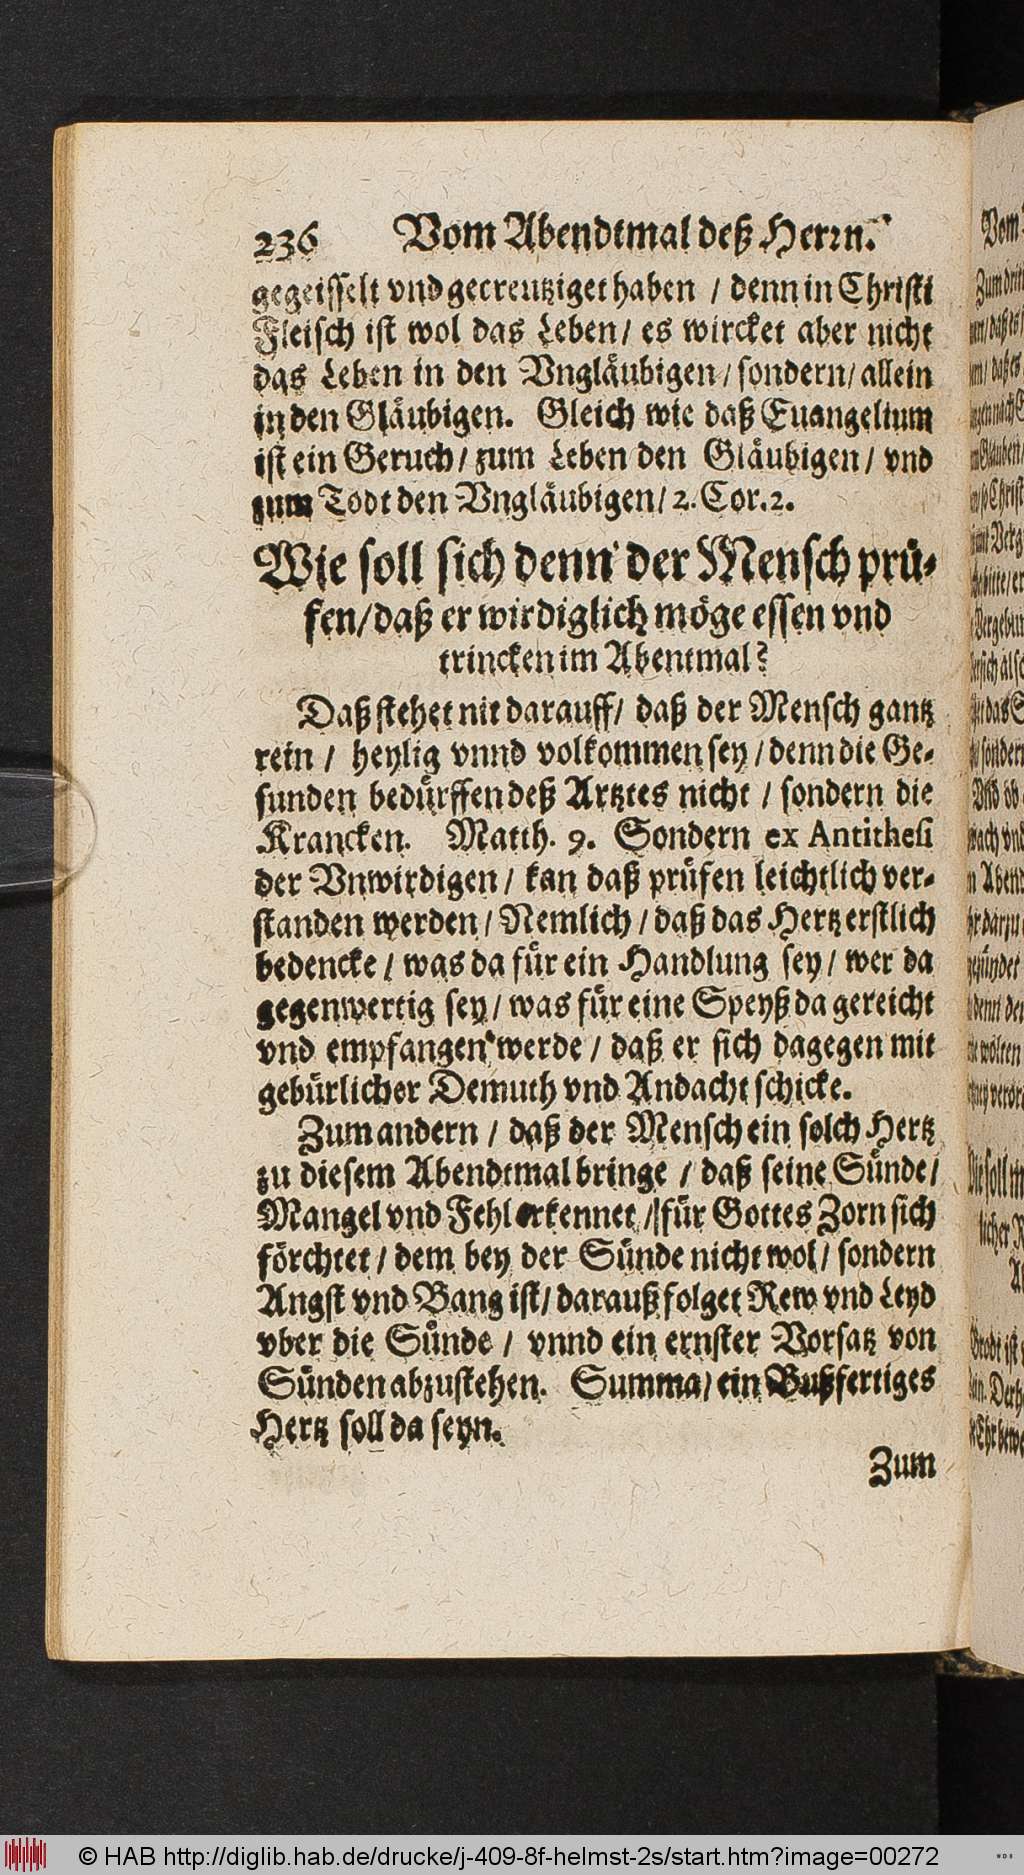 236 Vom Abendtmal deß Herrn.
gegeisselt vnd gecreutziget haben / denn in Christi
Fleisch ist wol das Leben / es wircket aber nicht
das Leben in den Vngläubigen / sondern / allein
in den Gläubigen. Gleich wie daß Euangelium
ist ein Geruch / zum Leben den Gläubigen / vnd
zum Todt den Vngläubigen / 2. Cor. 2.
Wie soll sich denn der Mensch prü-
fen / daß er wirdiglich möge essen vnd
trincken im Abentmal?
Daß stehet nit darauff / daß der Mensch gantz
rein / heylig vnnd volkommen sey / denn die Ge-
sunden bedürffen deß Artztes nicht / sondern die
Krancken. Matth. 9. Sondern ex Antithesi
der Vnwirdigen / kan daß prüfen leichtlich ver-
standen werden / Nemlich / daß das Hertz erstlich
bedencke / was da für ein Handlung sey / wer da
gegenwertig sey / was für eine Speyß da gereicht
vnd empfangen werde / daß er sich dagegen mit
gebürlicher Demuth vnd Andacht schicke.
Zum andern / daß der Mensch ein solch Hertz
zu diesem Abendtmal bringe / daß seine Sünde /
Mangel vnd Fehl erkennet / für Gottes Zorn sich
förchtet / dem bey der Sünde nicht wol / sondern
Angst vnd Bang ist / darauß folget Rew vnd Leyd
vber die Sünde / vnnd ein ernster Vorsatz von
Sünden abzustehen. Summa / ein Bußfertiges
Hertz soll da seyn.
Zum
© HAB http://diglib.hab.de/drucke/j-409-8f-helmst-2s/start.htm?image=00272